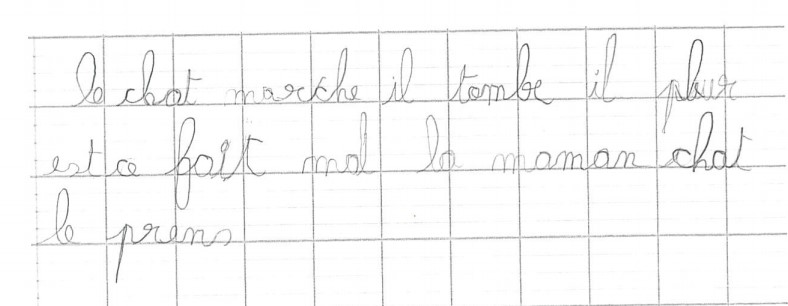 le chat marche il tombe il pleur
est ca fait mal la maman chat
le prens